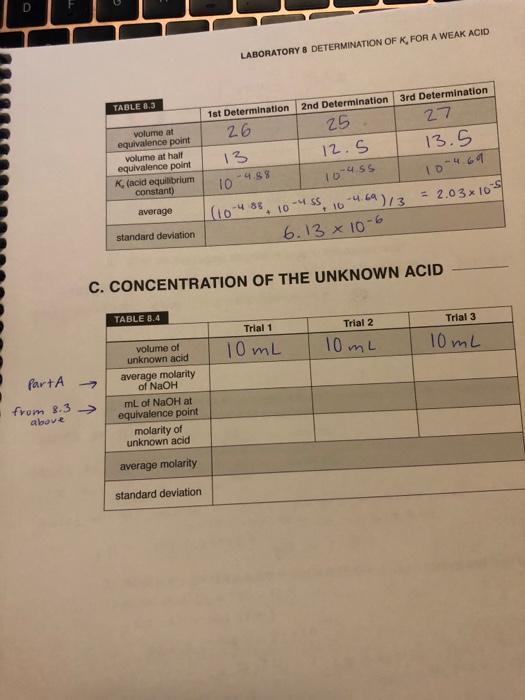 D
F
LABORATORY 8 DETERMINATION OF Kₐ FOR A WEAK ACID
TABLE 8.3
1st Determination 2nd Determination 3rd Determination
volume at equivalence point 26 25 27
volume at half equivalence point 13 12.5 13.5
Kₐ (acid equilibrium constant) 10^-4.88 10^-4.55 10^-4.69
average (10^-4.88, 10^-4.55, 10^-4.69)/3 = 2.03 x 10^-5
standard deviation 6.13 x 10^-6
C. CONCENTRATION OF THE UNKNOWN ACID
TABLE 8.4
Trial 1 Trial 2 Trial 3
volume of unknown acid 10 mL 10 mL 10 mL
Part A → average molarity of NaOH
from 8.3 above → mL of NaOH at equivalence point
molarity of unknown acid
average molarity
standard deviation